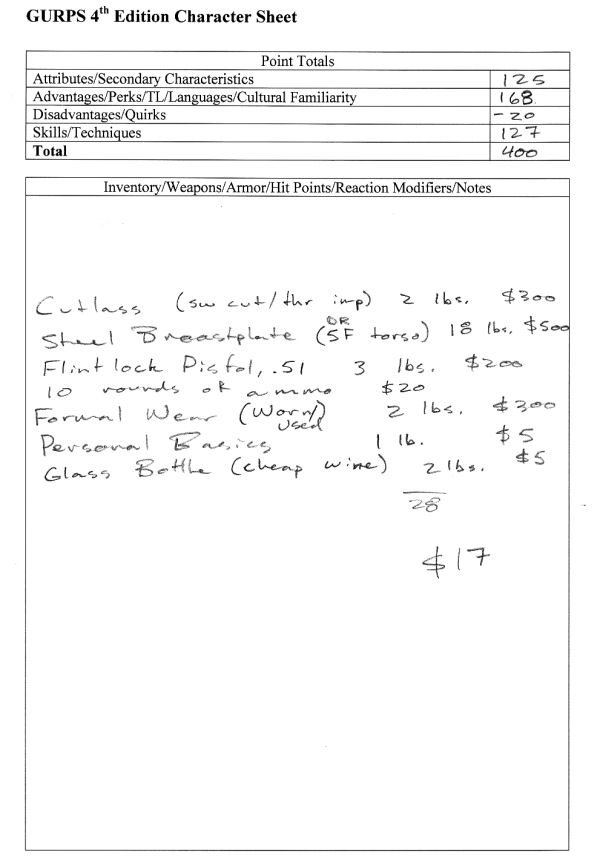 GURPS 4th Edition Character Sheet
Point Totals
Attributes/Secondary Characteristics 125
Advantages/Perks/TL/Languages/Cultural Familiarity 168
Disadvantages/Quirks -20
Skills/Techniques 127
Total 400
Inventory/Weapons/Armor/Hit Points/Reaction Modifiers/Notes
Cutlass (sw cut/thr imp) 2 lbs. $300
Steel Breastplate (DR 5F torso) 18 lbs. $500
Flintlock Pistol, .51 3 lbs. $200
10 rounds of ammo $20
Formal Wear (Worn/Used) 2 lbs. $300
Personal Basics 1 lb. $5
Glass Bottle (cheap wine) 2 lbs. $5
28
$17